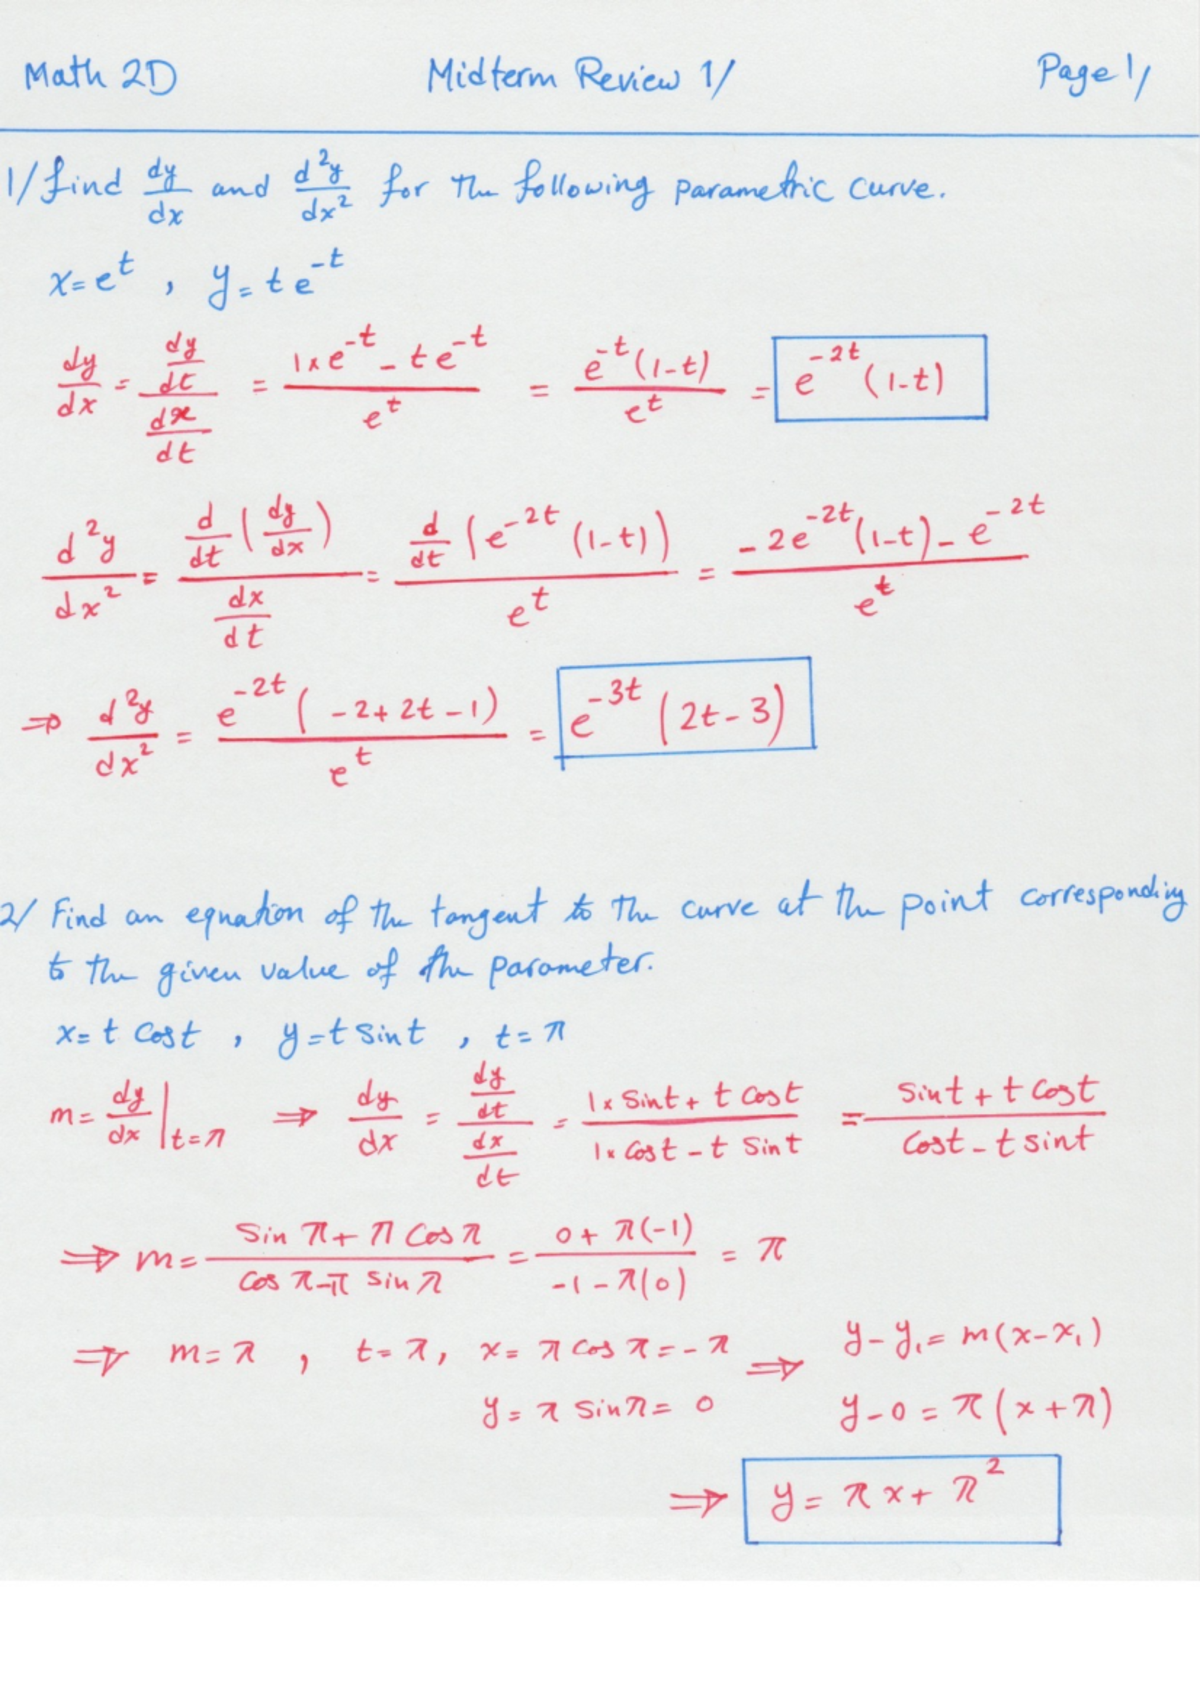 Math 2D Midterm Review 1/ Page 1/
1/ find dy/dx and d²y/dx² for the following parametric curve.
x=e^t , y=te^-t
dy/dx = (dy/dt)/(dx/dt) = (1×e^-t - te^-t)/e^t = (e^-t(1-t))/e^t = e^-2t(1-t)
d²y/dx² = (d/dt(dy/dx))/(dx/dt) = (d/dt(e^-2t(1-t)))/e^t = (-2e^-2t(1-t)-e^-2t)/e^t
⇒ d²y/dx² = (e^-2t(-2+2t-1))/e^t = e^-3t(2t-3)
2/ Find an equation of the tangent to the curve at the point corresponding
to the given value of the parameter.
x=t Cost , y=t Sint , t=π
m=dy/dx|t=π ⇒ dy/dx = (dy/dt)/(dx/dt) = (1×Sint+t Cost)/(1×Cost-t Sint) = (Sint+t Cost)/(Cost-t sint)
⇒ m=(Sin π+π Cos π)/(Cos π-π Sin π) = (0+π(-1))/(-1-π(0)) = π
⇒ m=π , t=π, x=π Cos π=-π ⇒ y-y₁=m(x-x₁)
y=π Sinπ=0 y-0=π(x+π)
⇒ y=πx+π²